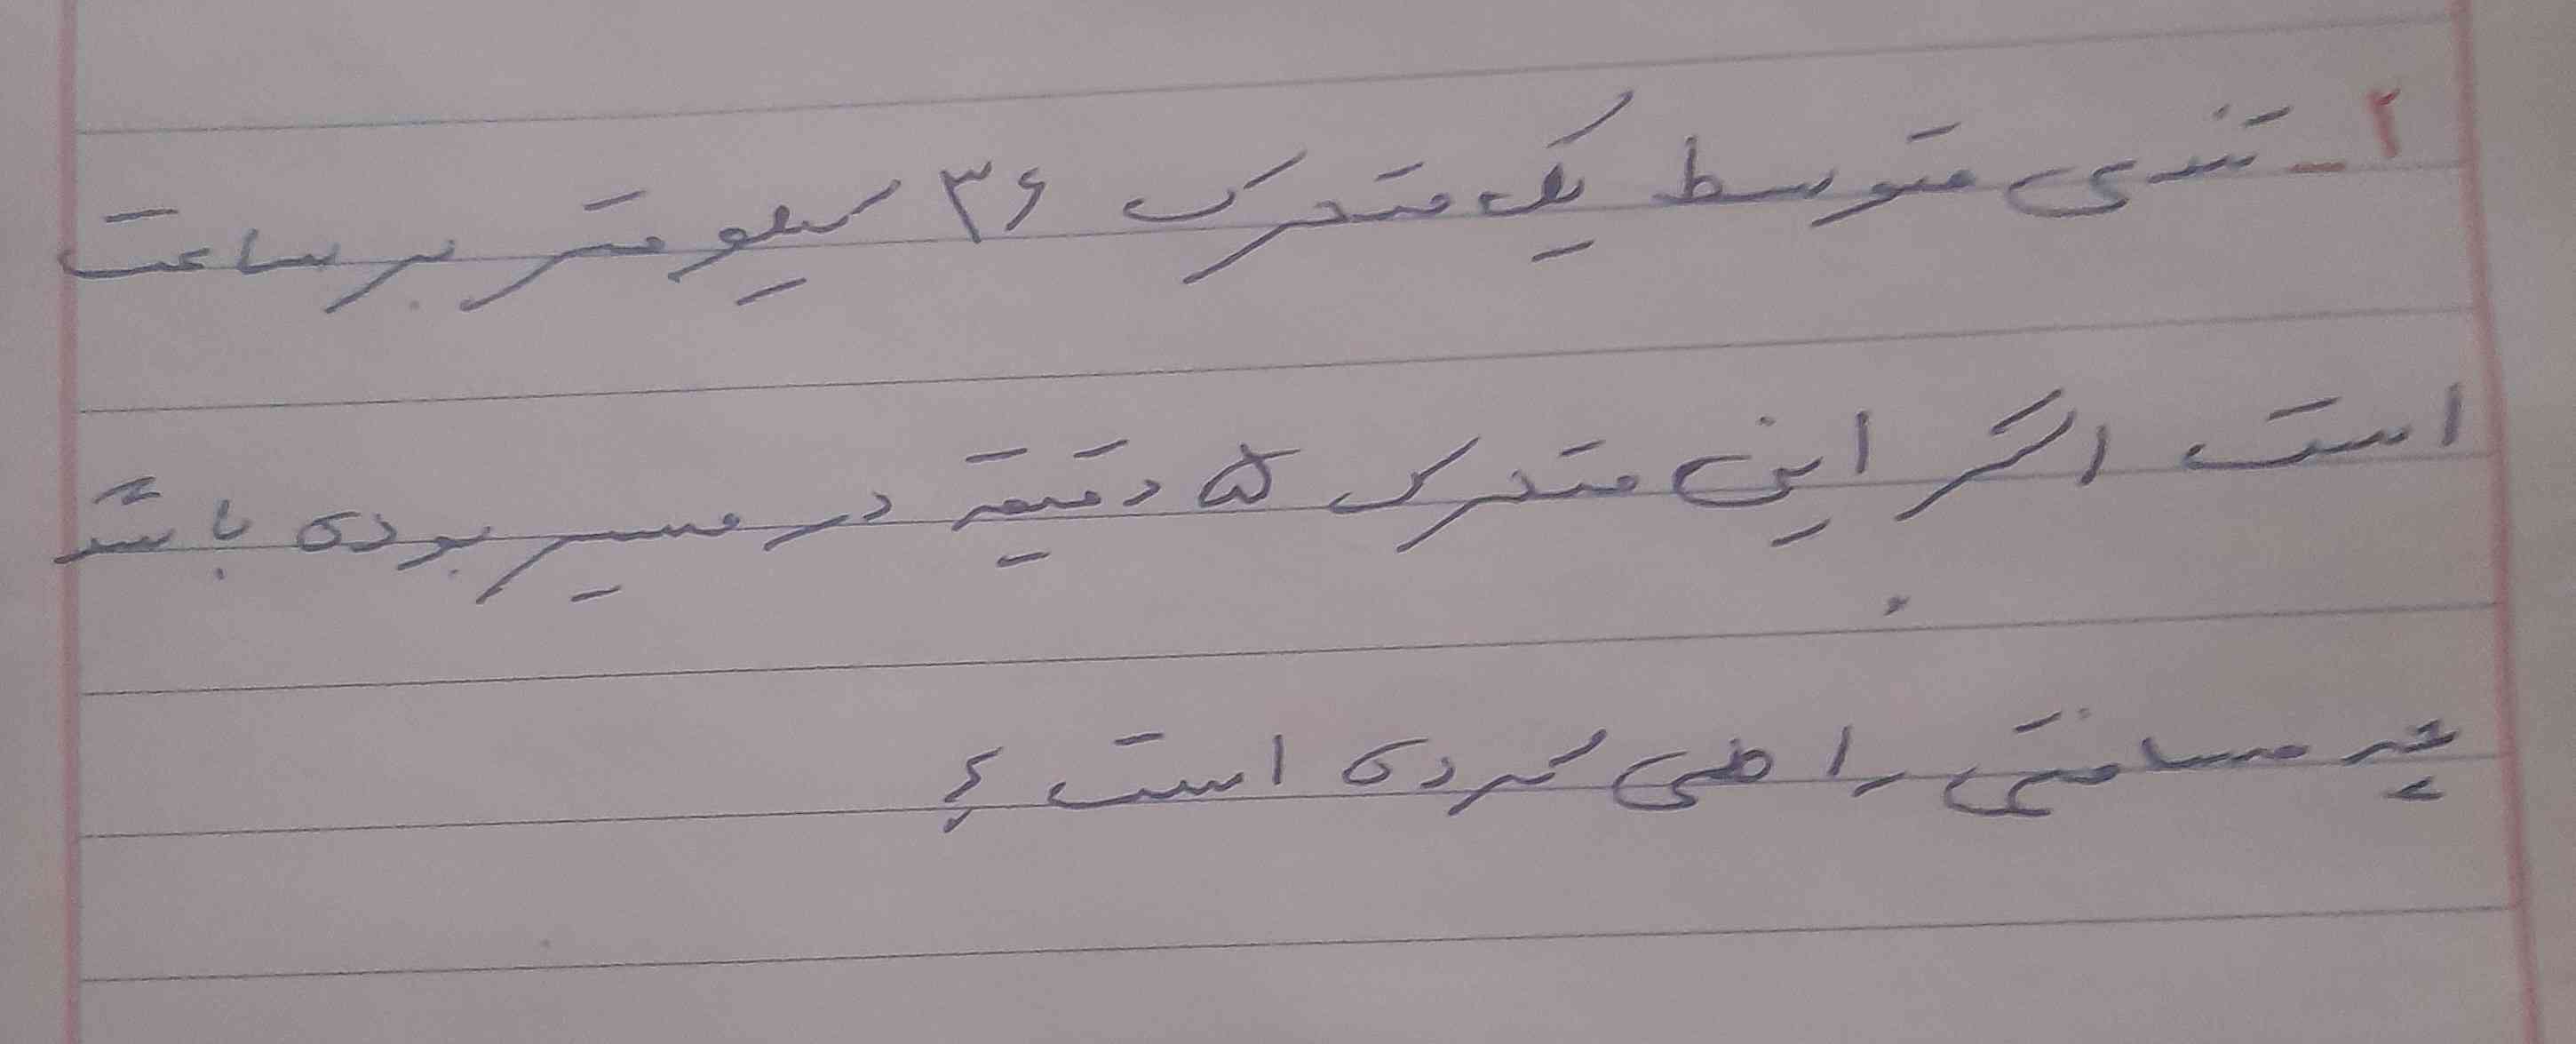 ۲ - تندی متوسط یک متحرک ۳۶ کیلومتر بر ساعت
است اگر این متحرک ۵ دقیقه در مسیر بوده باشد
چه مسافتی را طی کرده است؟